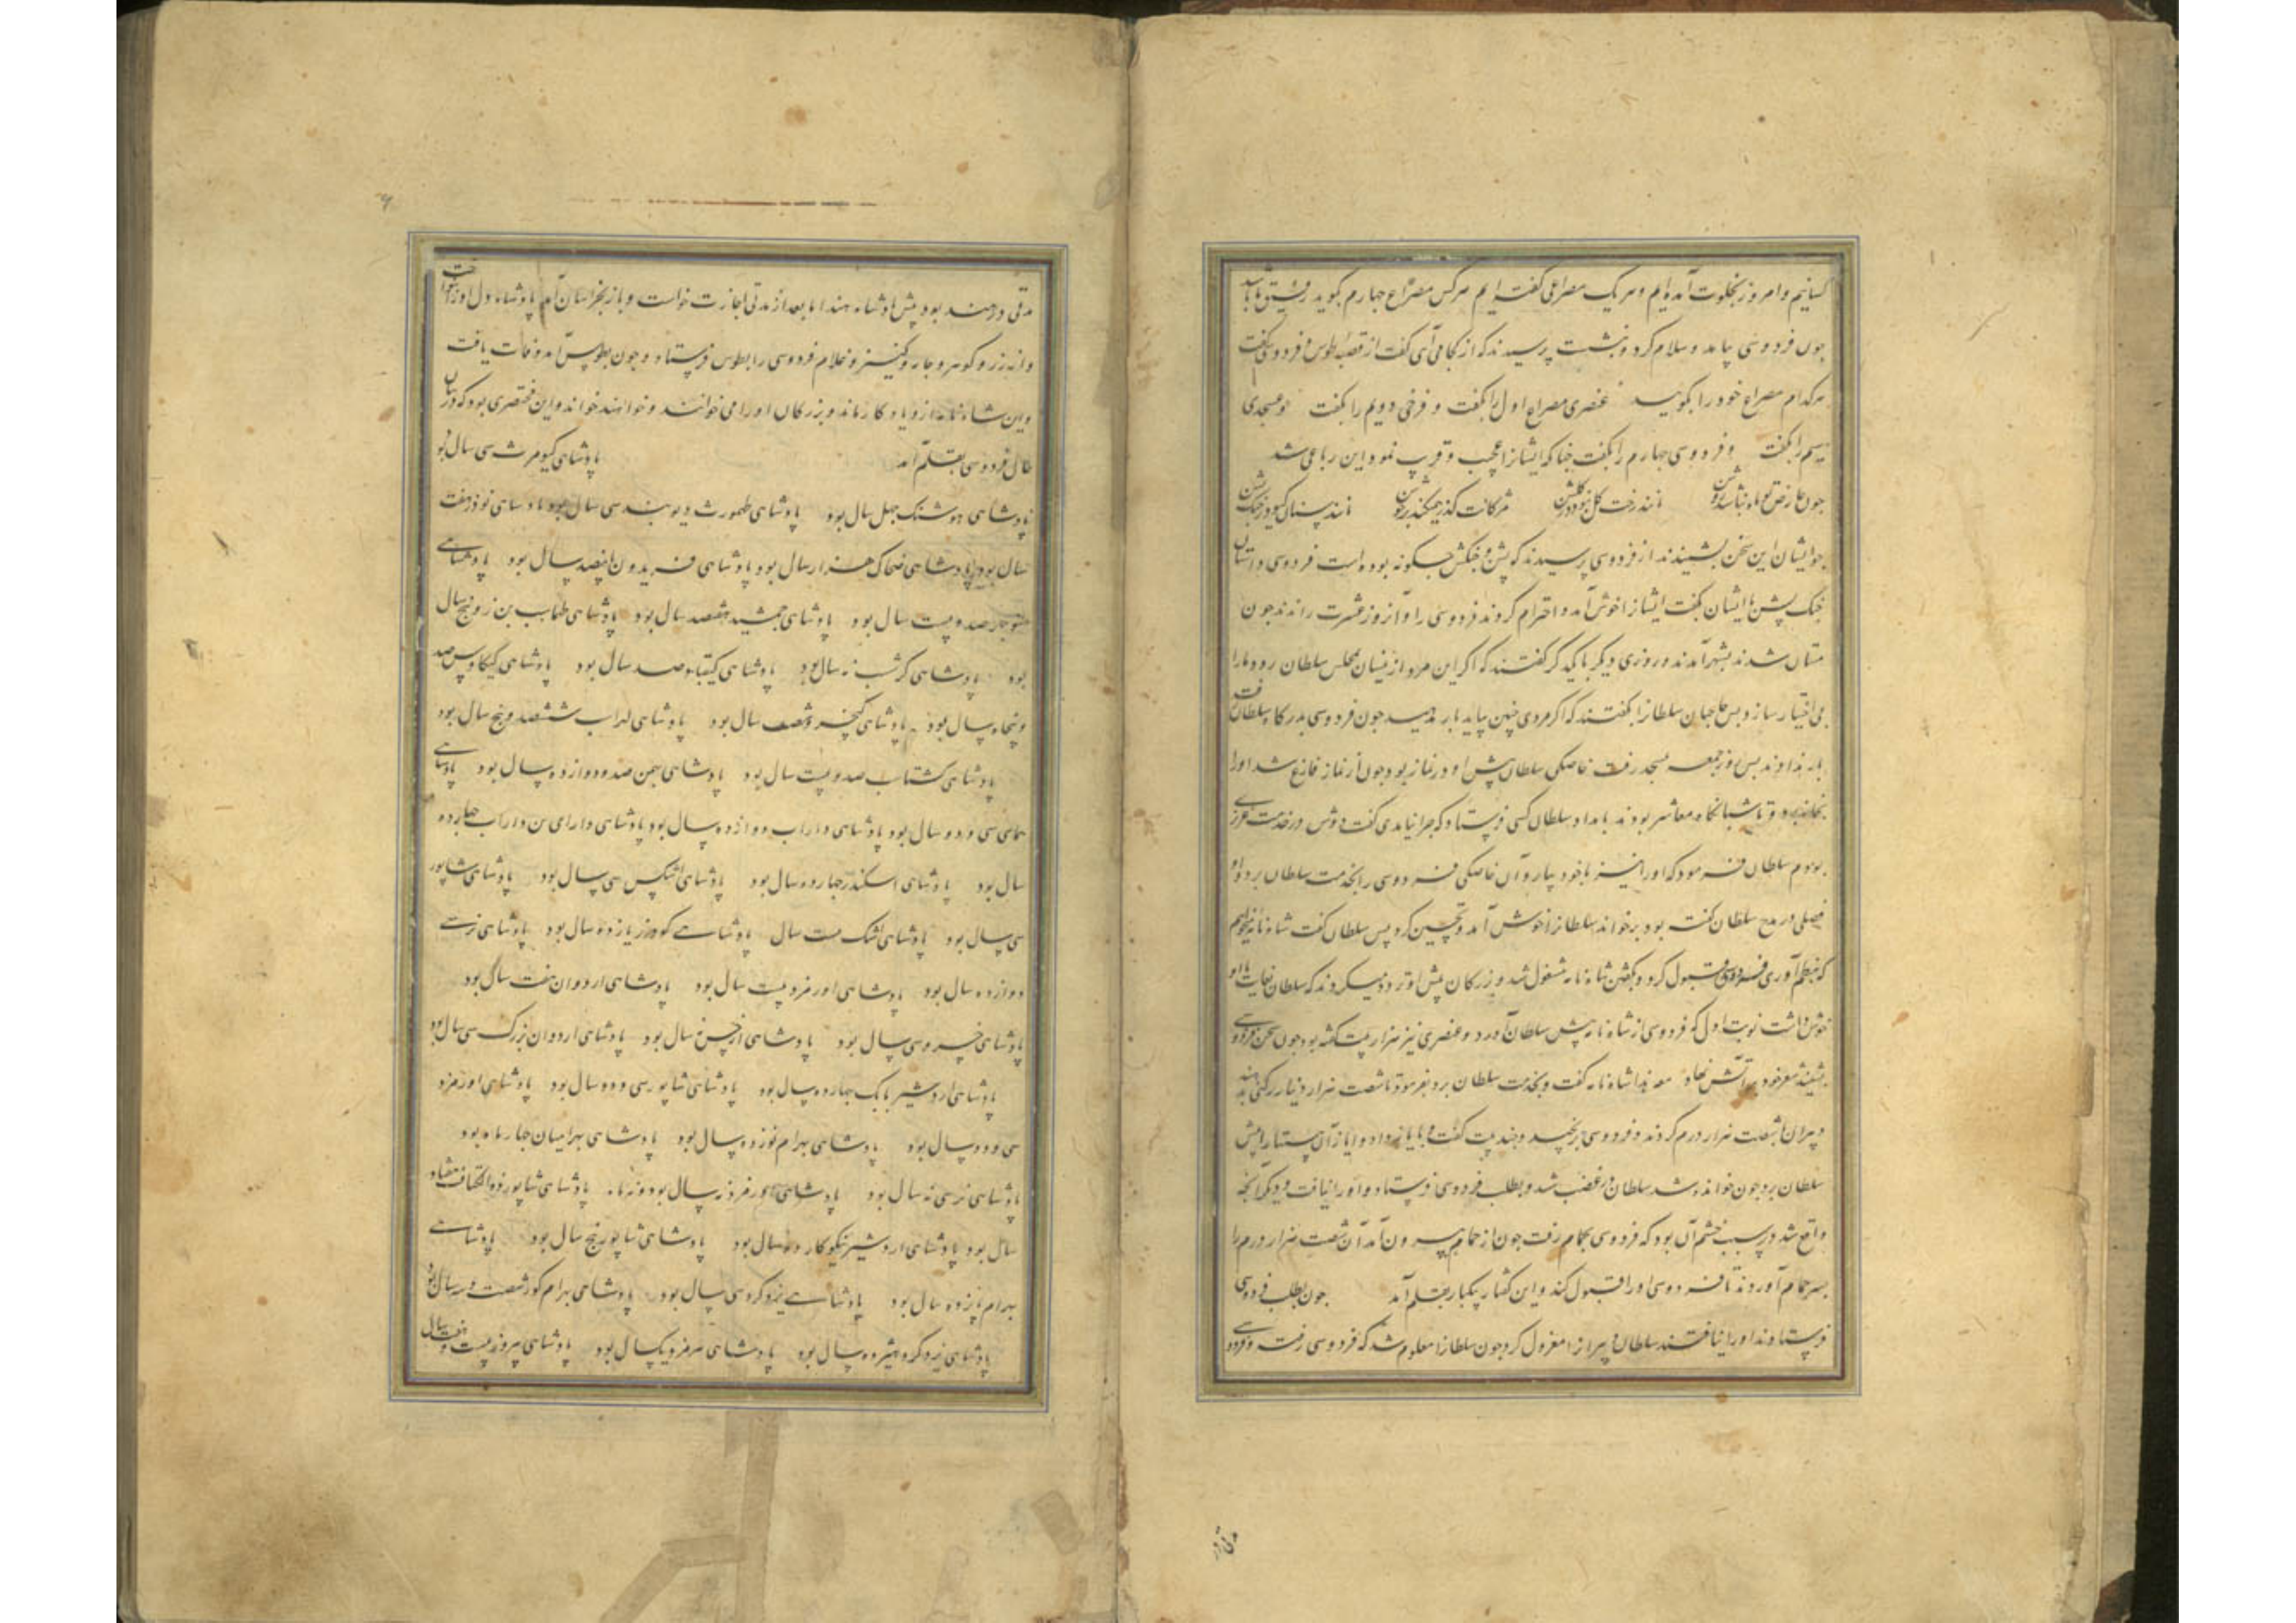 کسانیم و امروز بخلوت آمده‌ایم و هر یک مصراعی گفته‌ایم هر کس مصراع چهارم بگوید رفیق ما باشد
چون فردوسی بیامد و سلام کرد و بنشست پرسیدند که از کجا می‌آئی گفت از قصبه طوس و فردوسی گفت
هر کدام مصراع خود را بگویید عنصری مصراع اول را بگفت و فرخی دویم را بگفت و عسجدی
سیم را بگفت و فردوسی چهارم را بگفت چنانکه ایشانرا عجب و غریب نمود این رباعی شد
چون عارض تو ماه نباشد روشن مانند رخت گل نبود در گلشن مژگانت گذر همیکند بر جوشن مانند سنان گیو در جنگ پشن
چو ایشان این سخن بشنیدند از فردوسی پرسیدند که پشن و جنگش چگونه بوده است فردوسی داستان
جنگ پشن با ایشان بگفت ایشانرا خوش آمد و احترام کردند فردوسی را و آنروز عشرت راندند چون
مستان شدند بشهر آمدند و روزی دیگر با یکدیگر گفتند که اگر این مرد از میان مجلس سلطان رود ما را
بی اختیار سازد پس حاجبان سلطانرا بگفتند که اگر مردی چنین بیاید بار مدهید چون فردوسی بدرگاه سلطان رفت
بار ندادند پس روز جمعه بمسجد رفت خاصکی سلطان پیش او در نماز بود چون از نماز فارغ شد او را
بخانه برد و تا شبانگاه معاشر بودند بامداد سلطان کسی فرستاد که چرا نیامدی گفت دوش در خدمت عزیزی
بودم سلطان فرمود که او را نیز با خود بیار و آن خاصکی فردوسی را بخدمت سلطان برد و او
فصلی در مدح سلطان گفته بود برخواند سلطانرا خوش آمد و تحسین کرد پس سلطان گفت شاه نامه میخواهم
که بنظم آوری فردوسی قبول کرد و بگفتن شاه نامه مشغول شد و بزرگان پیش او تردد میکردند که سلطان بغایت با او
خوش داشت نوبت اول که فردوسی از شاه نامه پیش سلطان آورد و عنصری نیز هزار بیت گفته بود چون سخن فردوسی
بشنید شعر خود بر آتش نهاد شاه نامه گفت و بخدمت سلطان برد بفرمود تا شصت هزار دینار رکنی بدهند
دبیران شصت هزار درم کردند و فردوسی برنجید و چند بیت گفت و با ایاز داد و ایاز آن بستد پیش
سلطان برد چون خوانده شد سلطان در غضب شد و بطلب فردوسی فرستاد و او را نیافت و دیگر آنچه
واقع شد در سبب خشم آن بود که فردوسی بحمام رفت چون از حمام بیرون آمد آن شصت هزار درم را
بسر حمام آوردند تا فردوسی او را قبول کند و این گفتار یکبار بقلم آمد چون بطلب فردوسی
فرستادند او را نیافتند سلطان دبیر را معزول کرد چون سلطانرا معلوم شد که فردوسی رفت و فردوسی
مدتی در هند بود پیش پادشاه هند اما بعد از مدتی اجازت خواست و باز بخراسان آمد پادشاه دل او نواخت
و از زر و گوهر و جاریه و کنیز و غلام فردوسی را بطوس فرستاد و چون بطوس آمد وفات یافت
و این شاه‌نامه از و یادگار ماند و بزرگان او را می‌خوانند و خواهند خواند و این مختصری بود که در بیان
حال فردوسی بقلم آمد پادشاهی کیومرث سی سال بود
پادشاهی هوشنگ چهل سال بود پادشاهی طهمورث دیوبند سی سال بود پادشاهی نوذر هفت
سال بود پادشاهی ضحاک هزار سال بود پادشاهی فریدون پانصد سال بود پادشاهی
منوچهر صد و بیست سال بود پادشاهی جمشید هفتصد سال بود پادشاهی طهماسب بن زو پنج سال
بود پادشاهی گرشسب نه سال بود پادشاهی کیقباد صد سال بود پادشاهی کیکاوس صد
و پنجاه سال بود پادشاهی کیخسرو شصت سال بود پادشاهی لهراسب ششصد و پنج سال بود
پادشاهی گشتاسب صد و بیست سال بود پادشاهی بهمن صد و دوازده سال بود پادشاهی
همای سی و دو سال بود پادشاهی داراب دوازده سال بود پادشاهی دارای بن داراب چهارده
سال بود پادشاهی اسکندر چهارده سال بود پادشاهی اشکس سی سال بود پادشاهی شاپور
سی سال بود پادشاهی اشک بیست سال پادشاهی گودرز یازده سال بود پادشاهی نرسی
دوازده سال بود پادشاهی اورمزد بیست سال بود پادشاهی اردوان هفت سال بود
پادشاهی خسرو سی سال بود پادشاهی سال بود پادشاهی اردوان بزرگ سی سال بود
پادشاهی اردشیر بابک چهارده سال بود پادشاهی شاپور سی و دو سال بود پادشاهی اورمزد
سی و دو سال بود پادشاهی بهرام نوزده سال بود پادشاهی بهرامیان چهار ماه بود
پادشاهی نرسی نه سال بود پادشاهی اورمزد نه سال بود و نه ماه پادشاهی شاپور ذو الاکتاف هفتاد
سال بود پادشاهی اردشیر نیکوکار ده سال بود پادشاهی شاپور پنج سال بود پادشاهی
بهرام پانزده سال بود پادشاهی یزدگرد سی سال بود پادشاهی بهرام گور شصت و سه سال بود
پادشاهی یزدگرد هیژده سال بود پادشاهی هرمز یکسال بود پادشاهی پیروز بیست و هفت سال